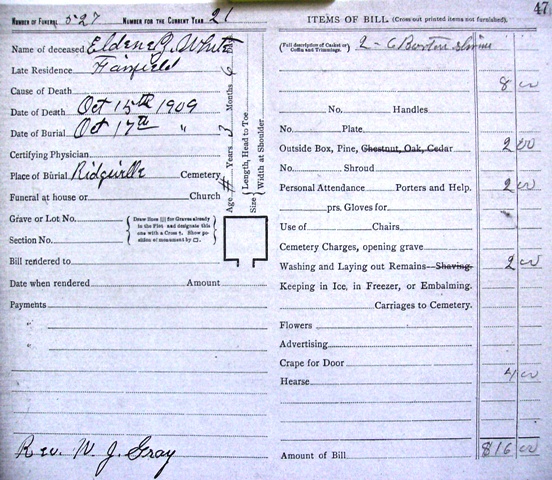 NUMBER OF FUNERAL 527 NUMBER FOR THE CURRENT YEAR 21
Name of deceased Eldene G. White
Late Residence Fairfield
Cause of Death
Date of Death Oct 15th 1909
Date of Burial Oct 17th "
Certifying Physician
Place of Burial Ridgeville Cemetery
Funeral at house or Church
Grave or Lot No.
Section No.
Draw lines for Graves already in the Plot and designate this one with a Cross †. Show position of monument by □.
Bill rendered to
Date when rendered Amount
Payments
"
"
Rev. W. J. Gray
Age Years 3 Months 6
Size Length, Head to Toe
Width at Shoulder
47
ITEMS OF BILL (Cross out printed items not furnished).
(Full description of Casket or Coffin and Trimmings.) 2 - 6 Burton
8 00
No. Handles
No. Plate
Outside Box, Pine, Chestnut, Oak, Cedar 2 00
No. Shroud
Personal Attendance Porters and Help. 2 00
prs. Gloves for
Use of Chairs
Cemetery Charges, opening grave
Washing and Laying out Remains—Shaving 2 00
Keeping in Ice, in Freezer, or Embalming.
Carriages to Cemetery.
Flowers
Advertising
Crape for Door
Hearse 4 00
Amount of Bill $16 00